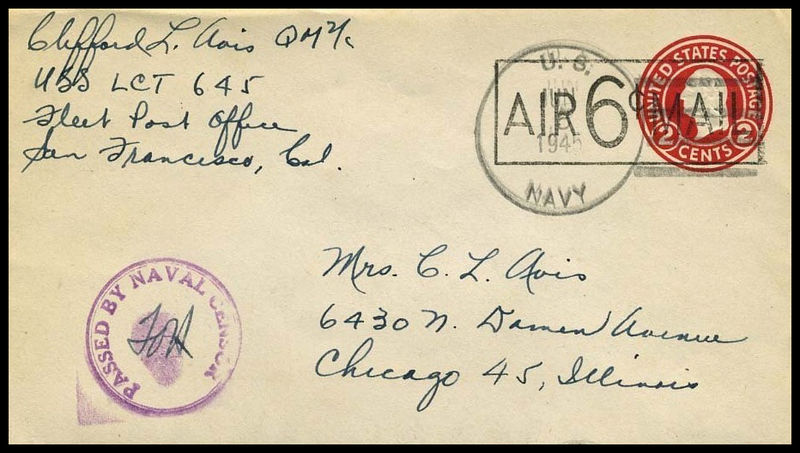 Clifford L. Avis QM 2/c
USS LCT 645
Fleet Post Office
San Francisco, Cal.
U. S.
JUN
1945
NAVY
AIR 6¢ MAIL
UNITED STATES POSTAGE
2 CENTS 2
PASSED BY NAVAL CENSOR
Mrs. C. L. Avis
6430 N. Damen Avenue
Chicago 45, Illinois